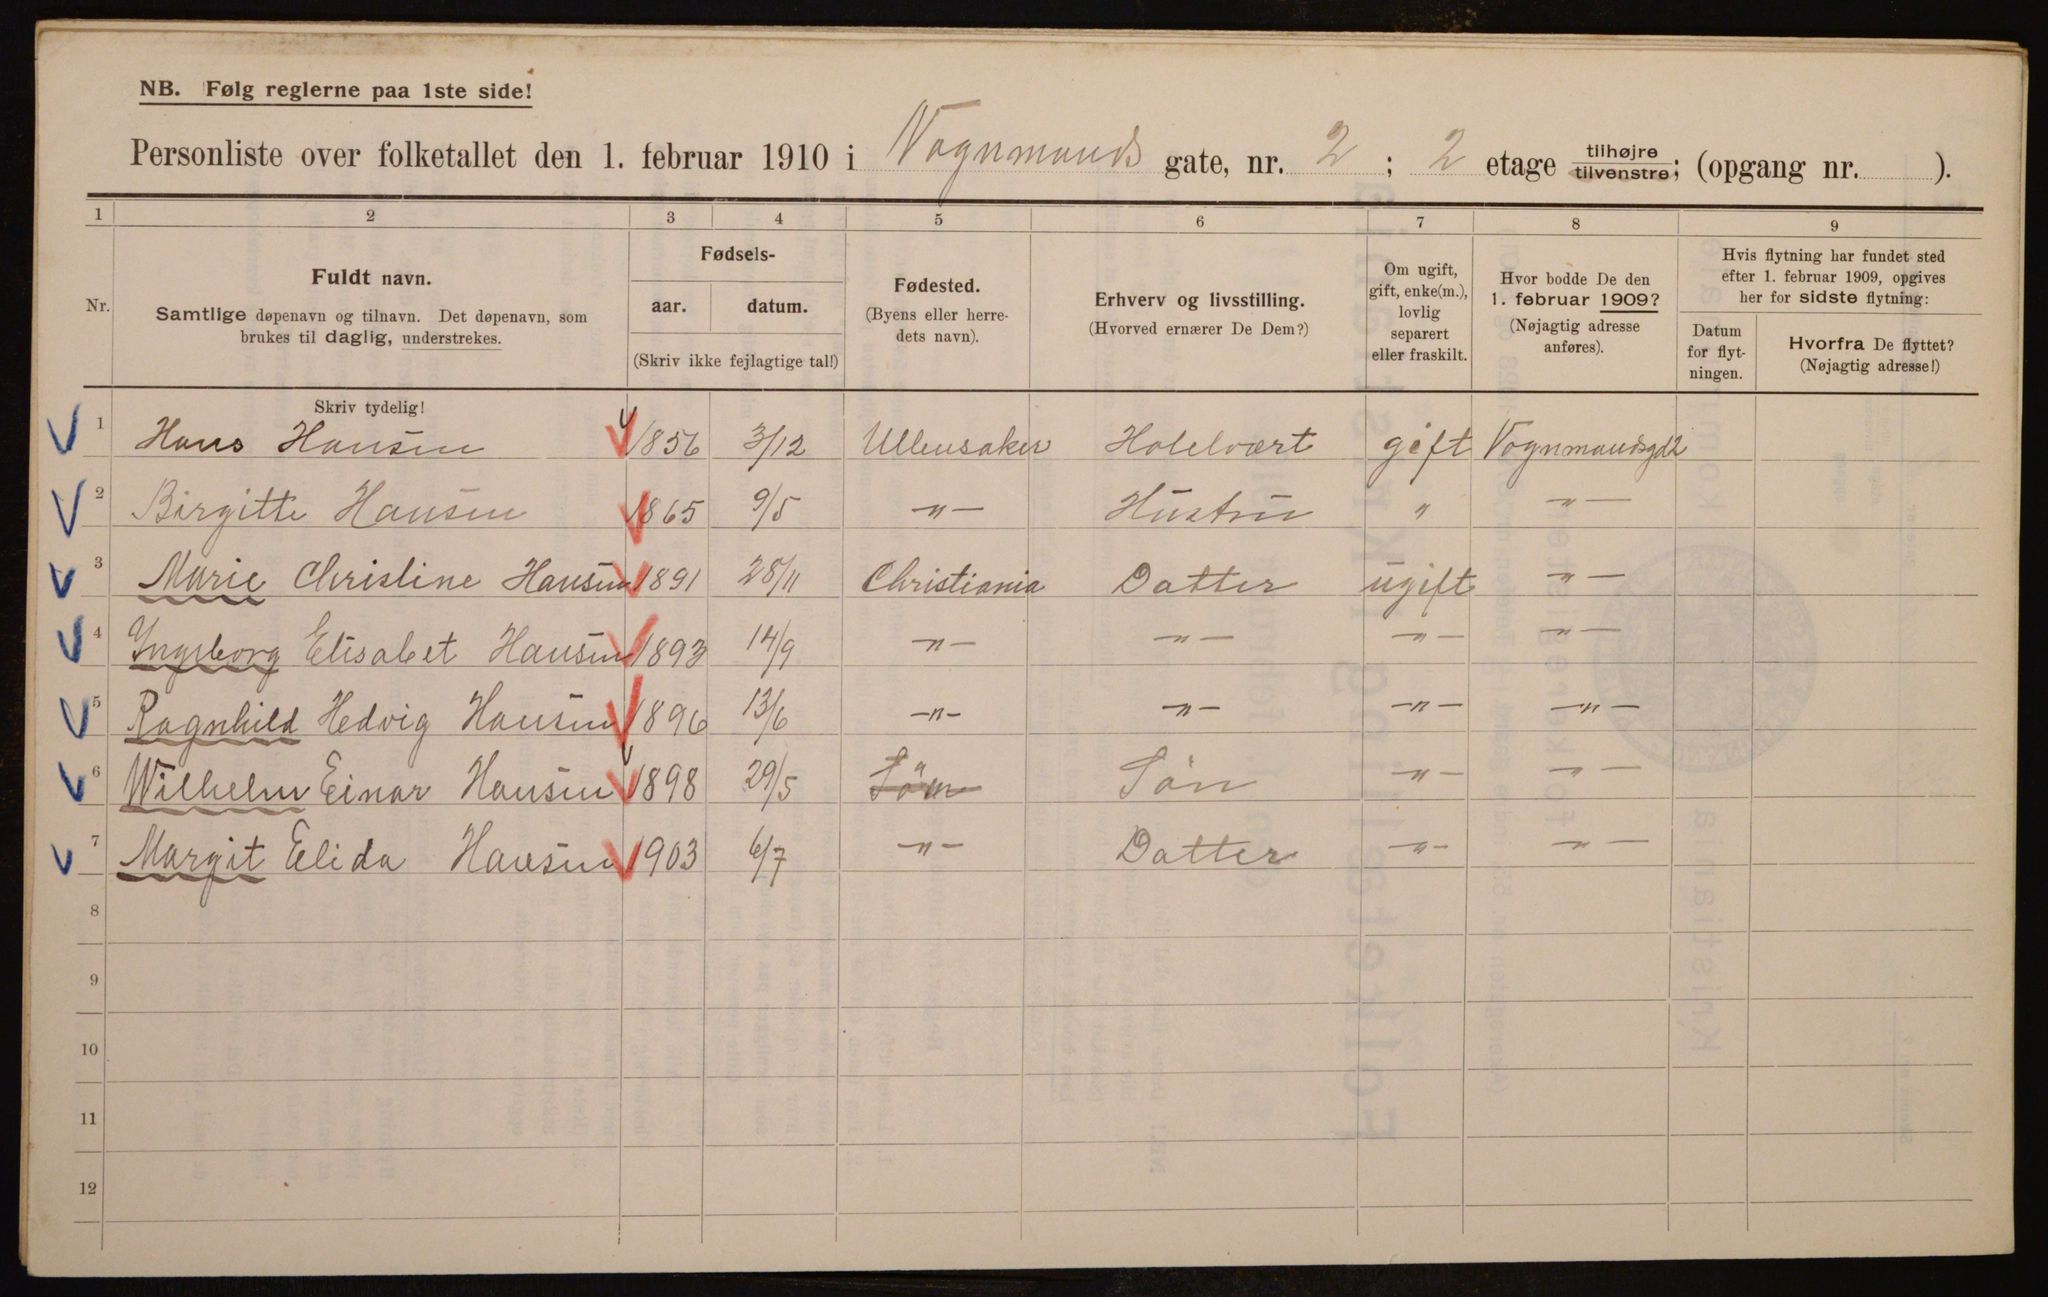 NB. Følg reglerne paa 1ste side!
Personliste over folketallet den 1. februar 1910 i Vognmands gate, nr. 2 ; 2 etage tilhøjre tilvenstre; (opgang nr. ).
1 2 3 4 5 6 7 8 9
Nr. Fuldt navn. Samtlige døpenavn og tilnavn. Det døpenavn, som brukes til daglig, understrekes.
Fødsels- aar. datum. (Skriv ikke fejlagtige tal!)
Fødested. (Byens eller herredets navn).
Erhverv og livsstilling. (Hvorved ernærer De Dem?)
Om ugift, gift, enke(m.), lovlig separert eller fraskilt.
Hvor bodde De den 1. februar 1909? (Nøjagtig adresse anføres).
Hvis flytning har fundet sted efter 1. februar 1909, opgives her for sidste flytning:
Datum for flytningen.
Hvorfra De flyttet? (Nøjagtig adresse!)
Skriv tydelig!
1 Hans Hansen 1856 3/12 Ullensaker Hotelvært gift Vognmandsgd2
2 Birgitte Hansen 1865 9/5 —"— Hustru " —"—
3 Marie Christine Hansen 1891 28/11 Christiania Datter ugift —"—
4 Ingeborg Elisabet Hansen 1893 14/9 —"— —"— —"— —"—
5 Ragnhild Hedvig Hansen 1896 13/6 —"— —"— —"— —"—
6 Wilhelm Einar Hansen 1898 29/5 " Søn —"— —"—
7 Margit Elida Hansen 1903 6/7 —"— Datter —"— —"—
8
9
10
11
12